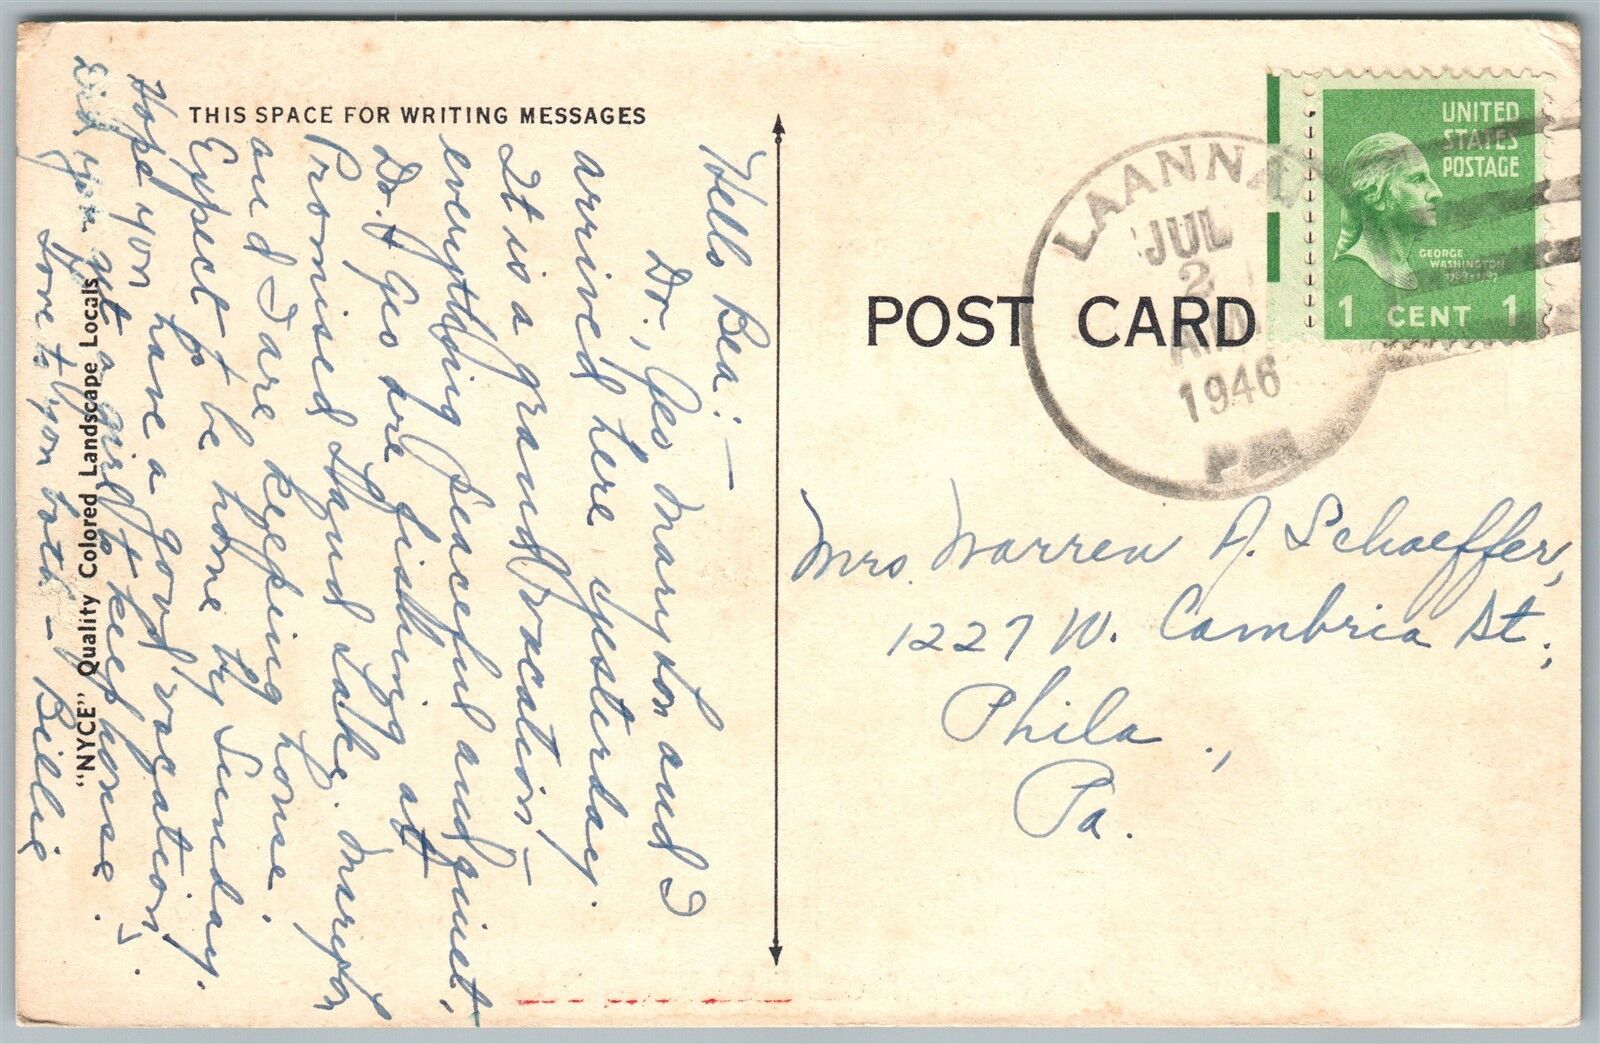 THIS SPACE FOR WRITING MESSAGES
Hello Bea: —
Dr., Geo, Marylon and I
arrived here yesterday.
It is a grand vacation —
everything peaceful and quiet,
Dr. & Geo are fishing at
Promised Land Lake. Marylon
and I are keeping house.
Expect to be home by Sunday.
Hope you have a good vacation.
Did you get a girl to keep house.
Love to you both — Billie
"NYCE" Quality Colored Landscape Locals
POST CARD
LAANNA
JUL
2
1946
PA
UNITED
STATES
POSTAGE
GEORGE
WASHINGTON
1 CENT 1
Mrs. Warren J. Schaeffer,
1227 W. Cambria St.,
Phila.,
Pa.